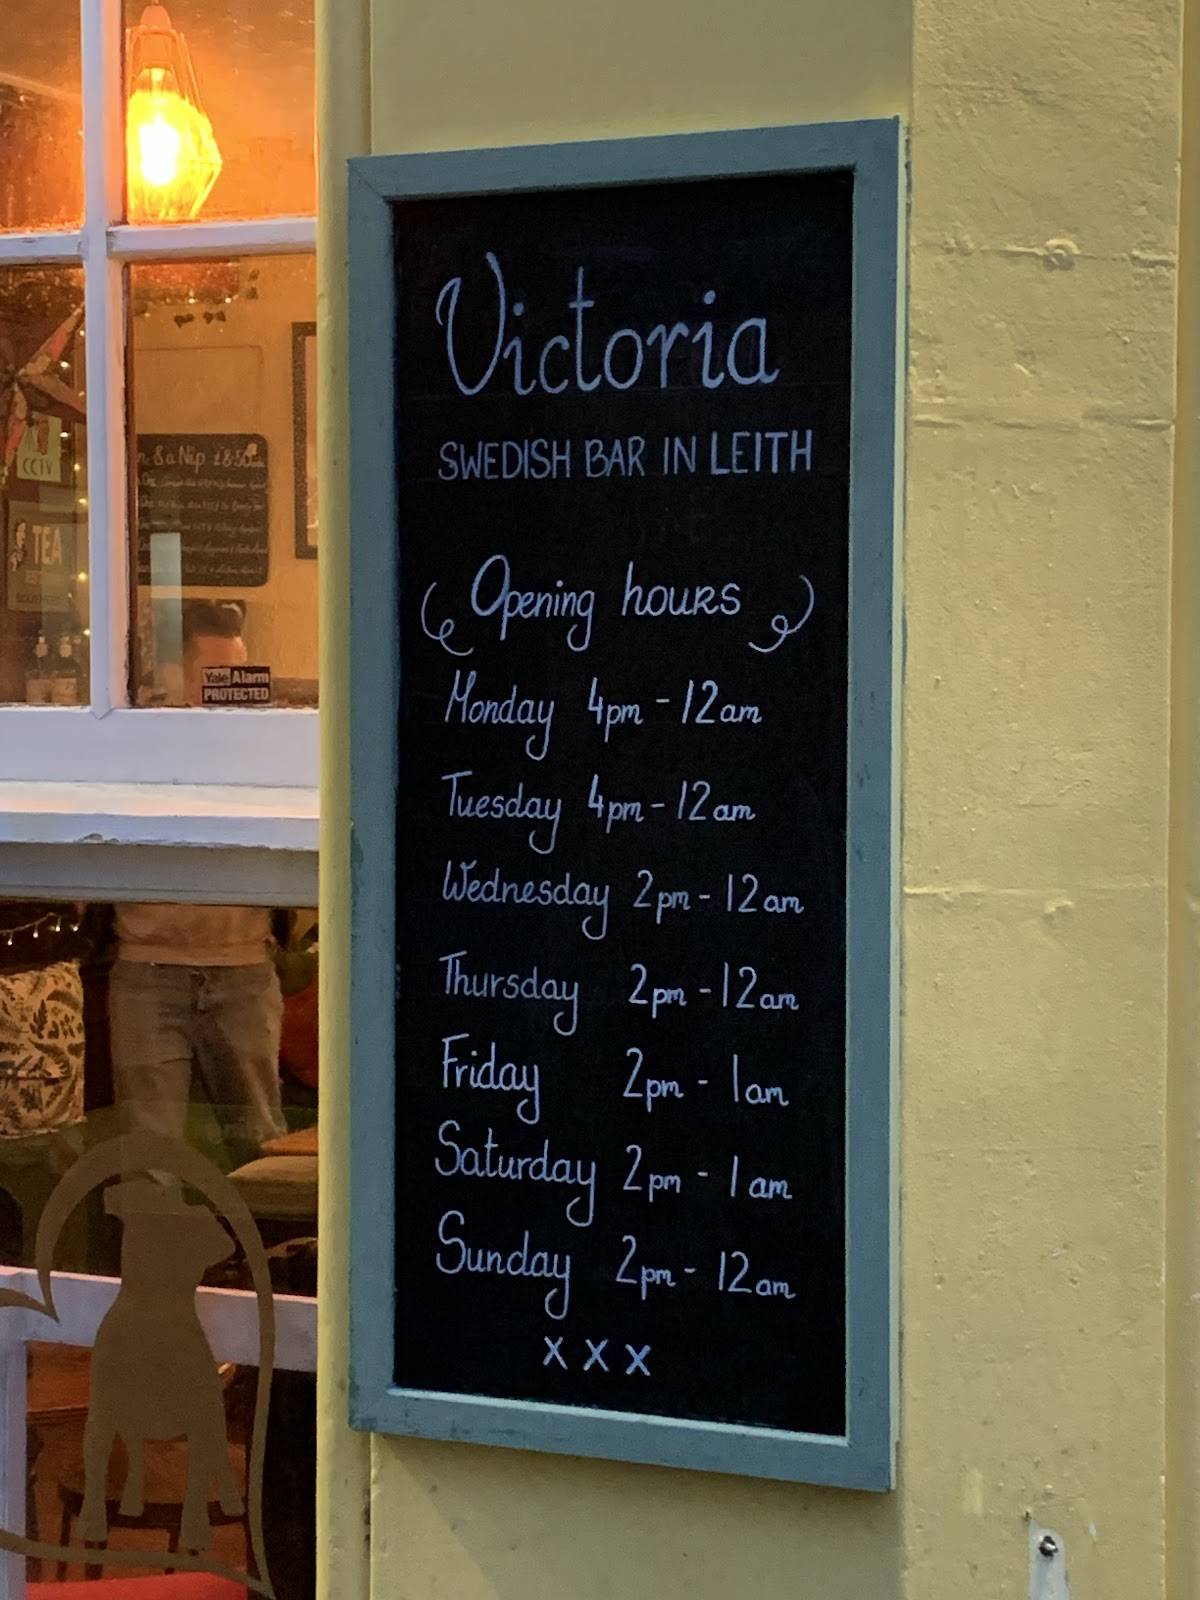 Victoria
SWEDISH BAR IN LEITH
Opening hours
Monday 4pm - 12am
Tuesday 4pm - 12am
Wednesday 2pm - 12am
Thursday 2pm - 12am
Friday 2pm - 1am
Saturday 2pm - 1am
Sunday 2pm - 12am
x x x
CCTV
TEA
n & a Nip £8.50
Yale Alarm
PROTECTED